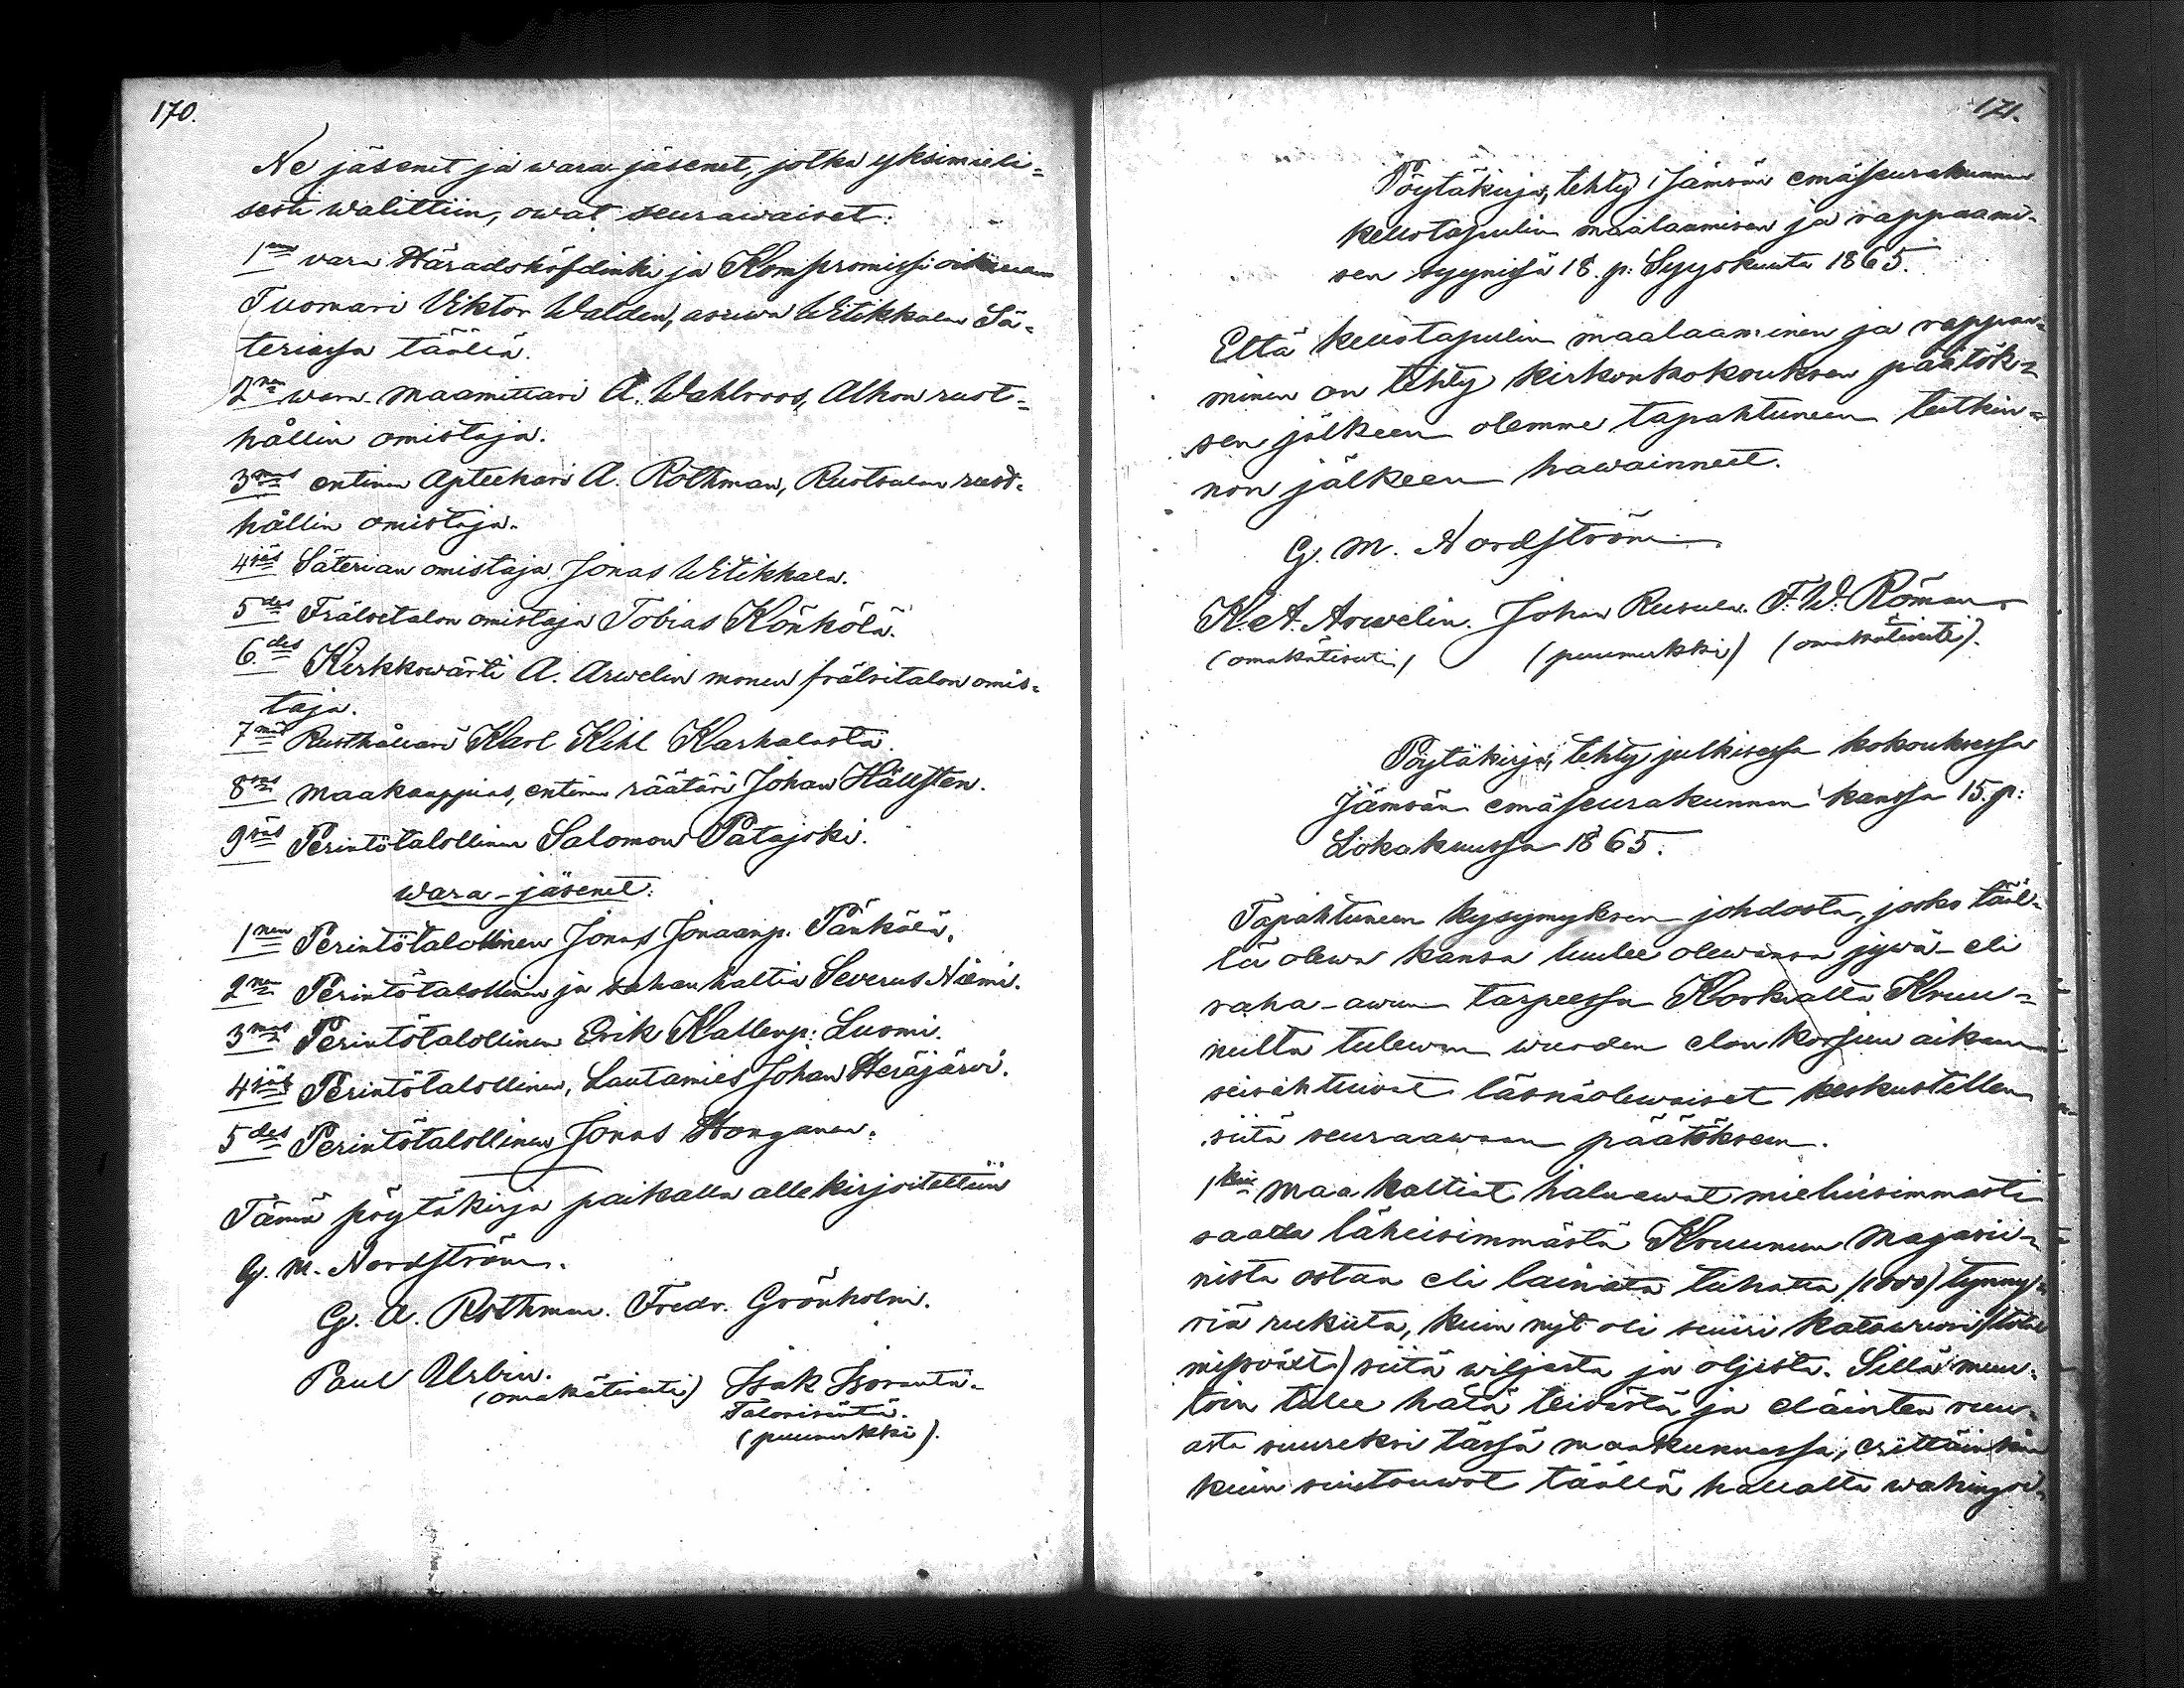 170.
Ne jäsenet ja wara-jäsenet, jotka yksimieli=
sesti walittiin, owat seurawaiset:
1mus vara Häradshöfdinki ja Kompromissi oikeuden
Tuomari Viktor Walden, asuwa Witikkalan Sä=
teriassa täällä.
2nen wara-maamittari A. Wahlroos, Alhon rust=
hållin omistaja.
3mas entinen Apteekari A. Rothman, Ruotsalan rust=
hållin omistaja.
4jäs Säterian omistaja Jonas Witikkala.
5des Frälsetalon omistaja Tobias Könkölä.
6des Kirkkowärti A. Arwelin monen frälsitalon omis=
taja.
7mäs Rusthållari Karl Kihl Karhalasta.
8sas maakauppias, entinen räätäri Johan Hällsten.
9säs Perintötalollinen Salomon Patajoki.
wara-jäsenet:
1nen Perintötalollinen Jonas Jonaanp. Pänkälä.
2nen Perintötalollinen ja sahan haltia Severus Niemi.
3mas Perintötalollinen Erik Kallenp: Luomi.
4jäs Perintötalollinen, Lautamies Johan Heräjärvi.
5des Perintötalollinen Jonas Honganen.
Tämä pöytäkirja paikalla allekirjoitettiin
G. M. Nordström.
G. A. Rothman. Fredr. Grönholm.
Paul Urbin. Isak Isoranta.
(omakätisesti) Talonisäntä.
(puumerkki).
171.
Pöytäkirja, tehty Jämsän emäseurakunnan
kellotapulin maalaamisen ja rappaami=
sen syynissä 18. p: Syyskuuta 1865.
Että kellotapulin maalaaminen ja rappaa=
minen on tehty kirkonkokouksen päätök=
sen jälkeen olemme tapahtuneen tutkin=
non jälkeen hawainneet.
G. M. Nordström
K. A. Arwelin. Johan Ruusula. F. W. Röman
(omakätisesti) (puumerkki) (omakätisesti).
Pöytäkirja, tehty julkisessa kokouksessa
Jämsän emäseurakunnan kanssa 15. p:
Lokakuussa 1865.
Tapahtuneen kysymyksen johdosta, josko tääl=
lä olewa kansa luulee olewansa jywä- eli
raha-awun tarpeessa Korkialta Kruu=
nulta tulewan wuoden elon korjuu aikaan
seisahtuivat läsnäolewaiset keskustellen
siitä seuraawaan päätöksen.
1ksi Maa haltiat haluawat mieluisimmasti
saada läheisimmästä Kruunun Magasii=
nista ostaa eli lainata tuhatta (1000) tynny=
riä rukiita, kuin nyt oli suuri katowuosi (total
missväxt) siitä wiljasta ja oljista. Sillä muu=
toin tulee hätä leiwästä ja eläinten ruu=
asta suureksi tässä maakunnassa, erittäin kin
kuin suwitouwot täällä hallalta wahingoi=